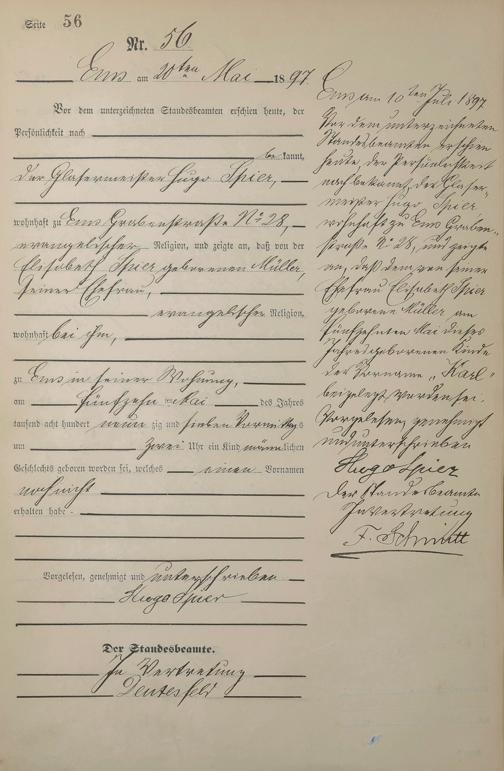 Seite 56
Nr. 56
Ems am 20ten Mai 1897
Vor dem unterzeichneten Standesbeamten erschien heute, der
Persönlichkeit nach
bekannt,
der Glasermeister Hugo Spier,
wohnhaft zu Ems Grabenstraße No 28,
evangelischer Religion, und zeigte an, daß von der
Elisabeth Spier geborenen Müller,
seiner Ehefrau,
evangelischer Religion,
wohnhaft bei ihm,
zu Ems in seiner Wohnung,
am fünfzehn ten Mai des Jahres
tausend acht hundert neunzig und sieben Vormittags
um zwei Uhr ein Kind männlichen
Geschlechts geboren worden sei, welches einen Vornamen
noch nicht
erhalten habe
Vorgelesen, genehmigt und unterschrieben
Hugo Spier
Der Standesbeamte.
In Vertretung
Ems am 10ten Juli 1897
Vor dem unterzeichneten
Standesbeamten erschien
heute, der Persönlichkeit
nach bekannt, der Glaser-
meister Hugo Spier
wohnhaft zu Ems Graben-
straße No 28, und zeigte
an, daß dem von seiner
Ehefrau Elisabeth Spier
geborene Müller am
fünfzehnten Mai dieses
Jahres geborenen Kinde
der Vorname „Karl"
beigelegt worden sei.
Vorgelesen, genehmigt
und unterschrieben
Hugo Spier
Der Standesbeamte
In Vertretung
F. Schmitt